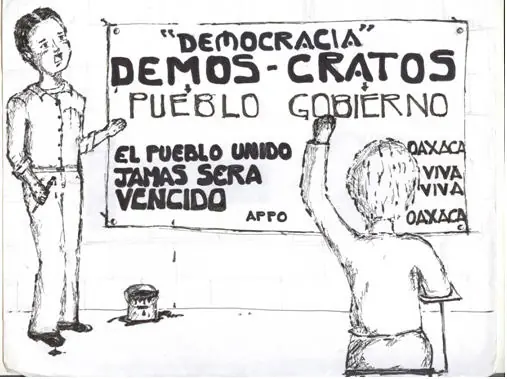 "DEMOCRACIA"
DEMOS - CRATOS
PUEBLO GOBIERNO
EL PUEBLO UNIDO
JAMAS SERA
VENCIDO
APPO
OAXACA
VIVA
VIVA
OAXACA